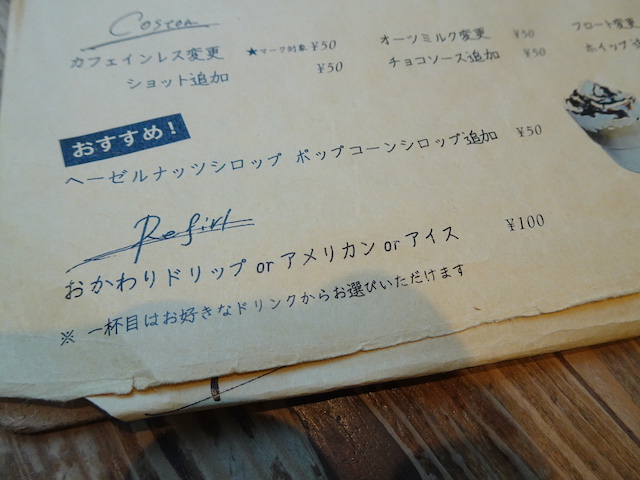 Costom
カフェインレス変更 ★マーク対象 ¥50
ショット追加 ¥50
オーツミルク変更 ¥50
チョコソース追加 ¥50
フロート変更
ホイップ
おすすめ!
ヘーゼルナッツシロップ ポップコーンシロップ追加 ¥50
Refirl
おかわりドリップ or アメリカン or アイス ¥100
※ 一杯目はお好きなドリンクからお選びいただけます